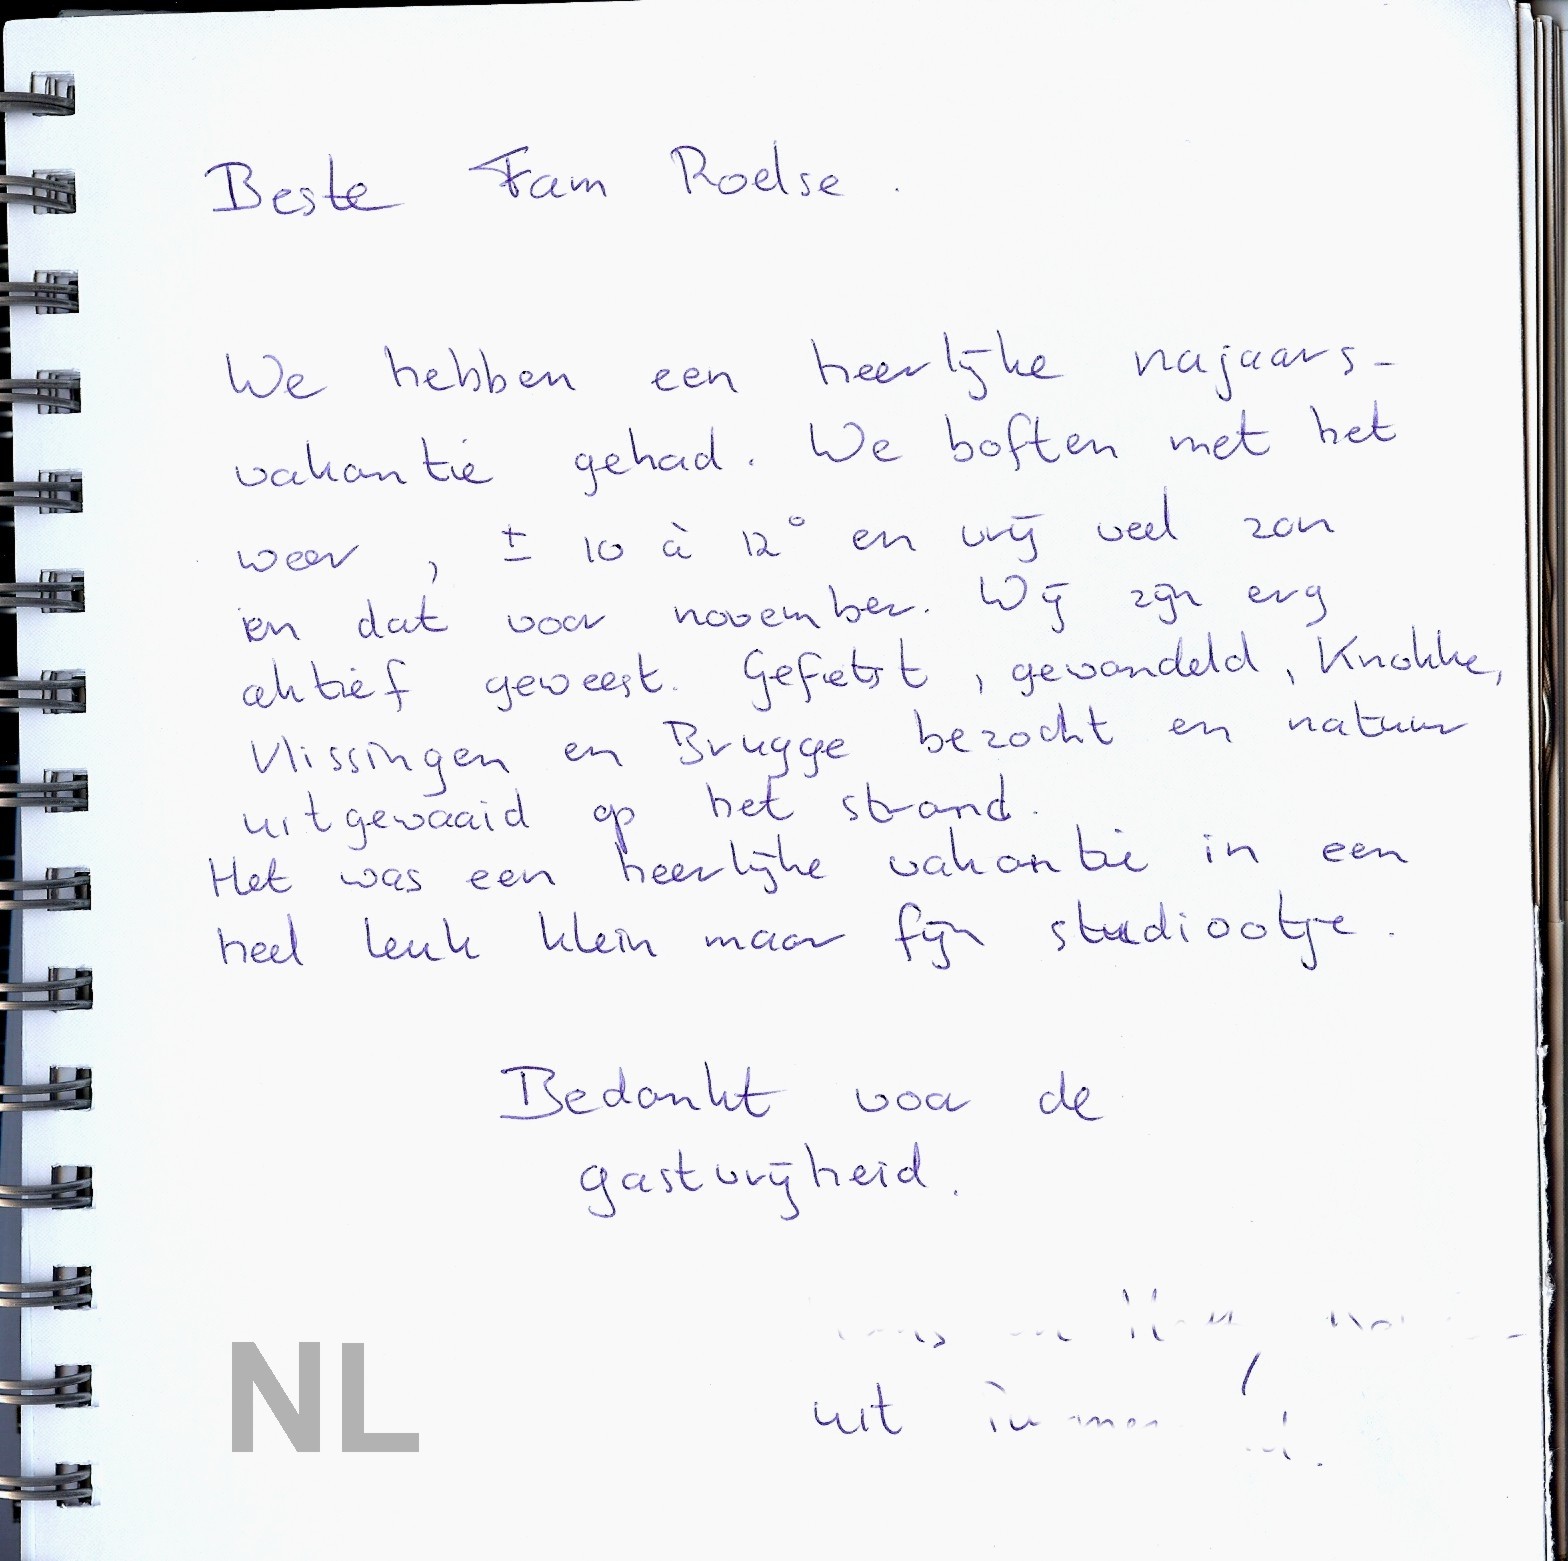 Beste Fam Roelse.
We hebben een heerlijke najaars-
vakantie gehad. We boften met het
weer, ± 10 à 12° en vrij veel zon
en dat voor november. Wij zijn erg
aktief geweest. Gefietst, gewandeld, Knokke,
Vlissingen en Brugge bezocht en natuur
uitgewaaid op het strand.
Het was een heerlijke vakantie in een
heel leuk klein maar fijn studiootje.
Bedankt voor de
gastvrijheid.
uit
NL